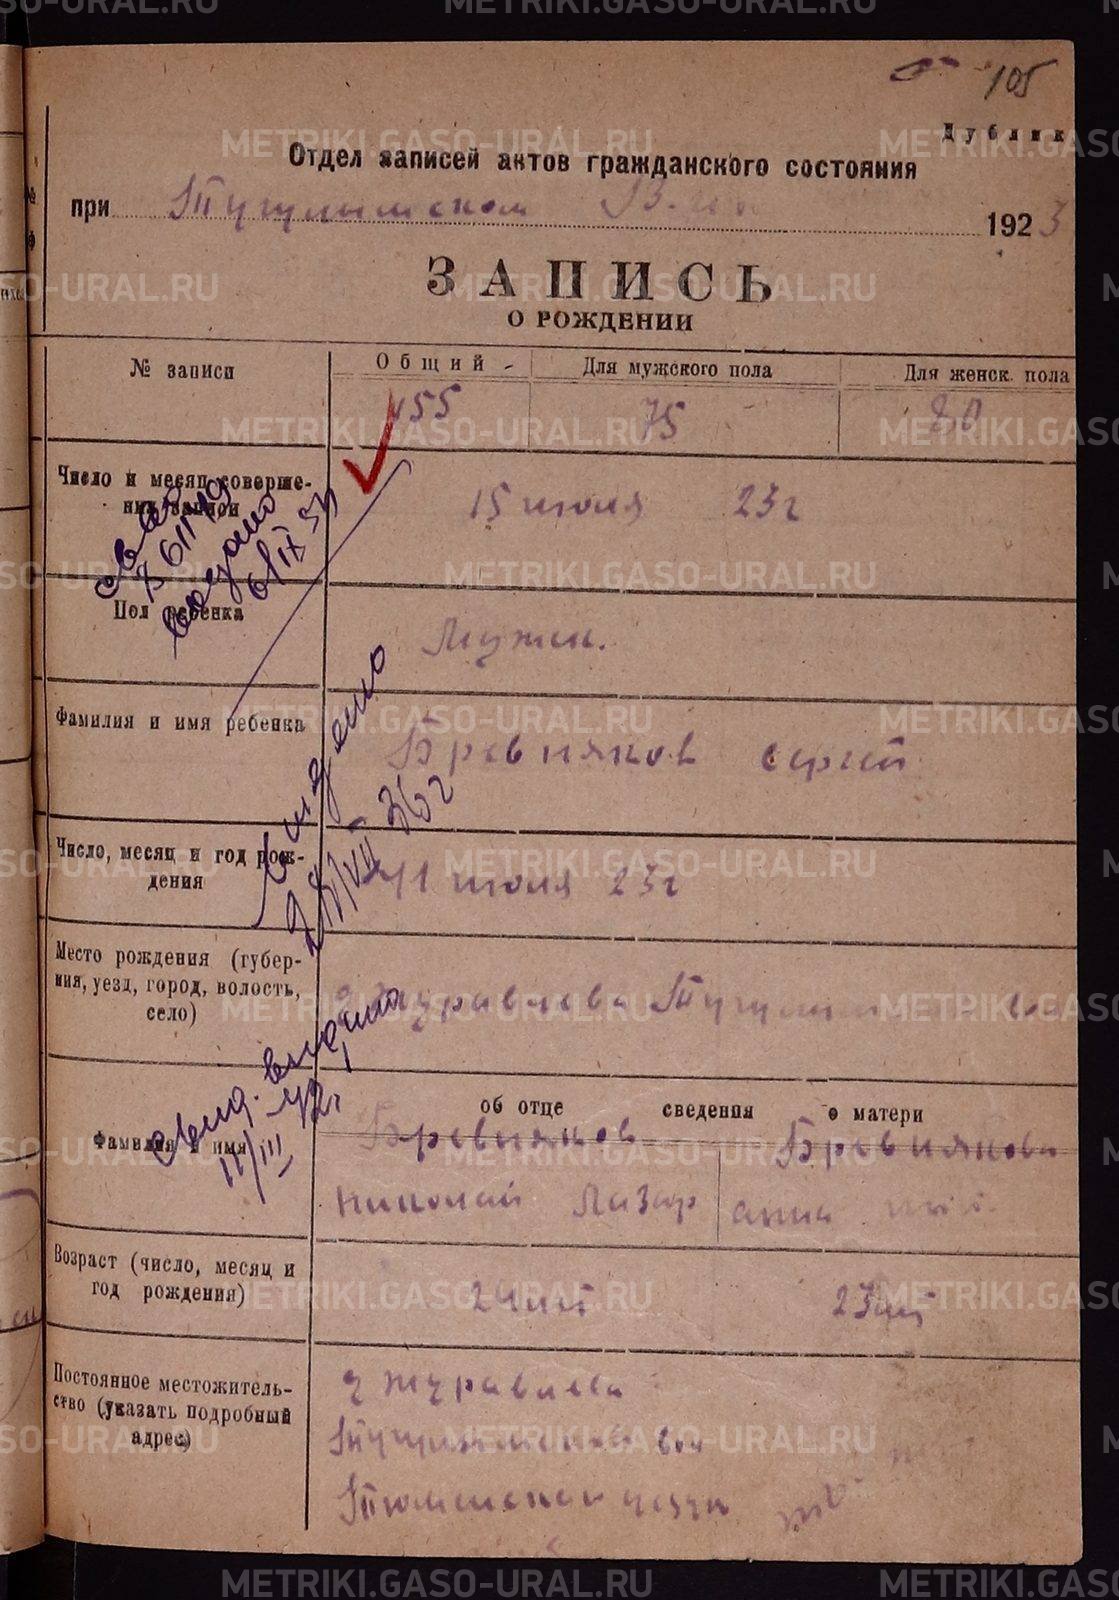 105
Дублик
Отдел записей актов гражданского состояния
при Тугулымском В. 1923
ЗАПИСЬ
О РОЖДЕНИИ
№ записи
Общий
Для мужского пола
Для женск. пола
155
75
80
Число и месяц соверше-
ния записи
15 июля 23 г
Пол ребенка
Мужск.
Фамилия и имя ребенка
Бревняков Сергей
Число, месяц и год рож-
дения
11 июля 23 г
Место рождения (губер-
ния, уезд, город, волость,
село)
д Журавлева Тугулымской вол
об отце сведения о матери
Фамилия и имя
Бревняков
Бревнякова
Николай Лазар
Анна
Возраст (число, месяц и
год рождения)
24 лет
23 лет
Постоянное местожитель-
ство (указать подробный
адрес)
д Журавлева
Тугулымской вол
Тюменского уезда
выдано
6/IX 53
выдено
VII 36 г
свид. выдано
11/III 42 г.
METRIKI.GASO-URAL.RU